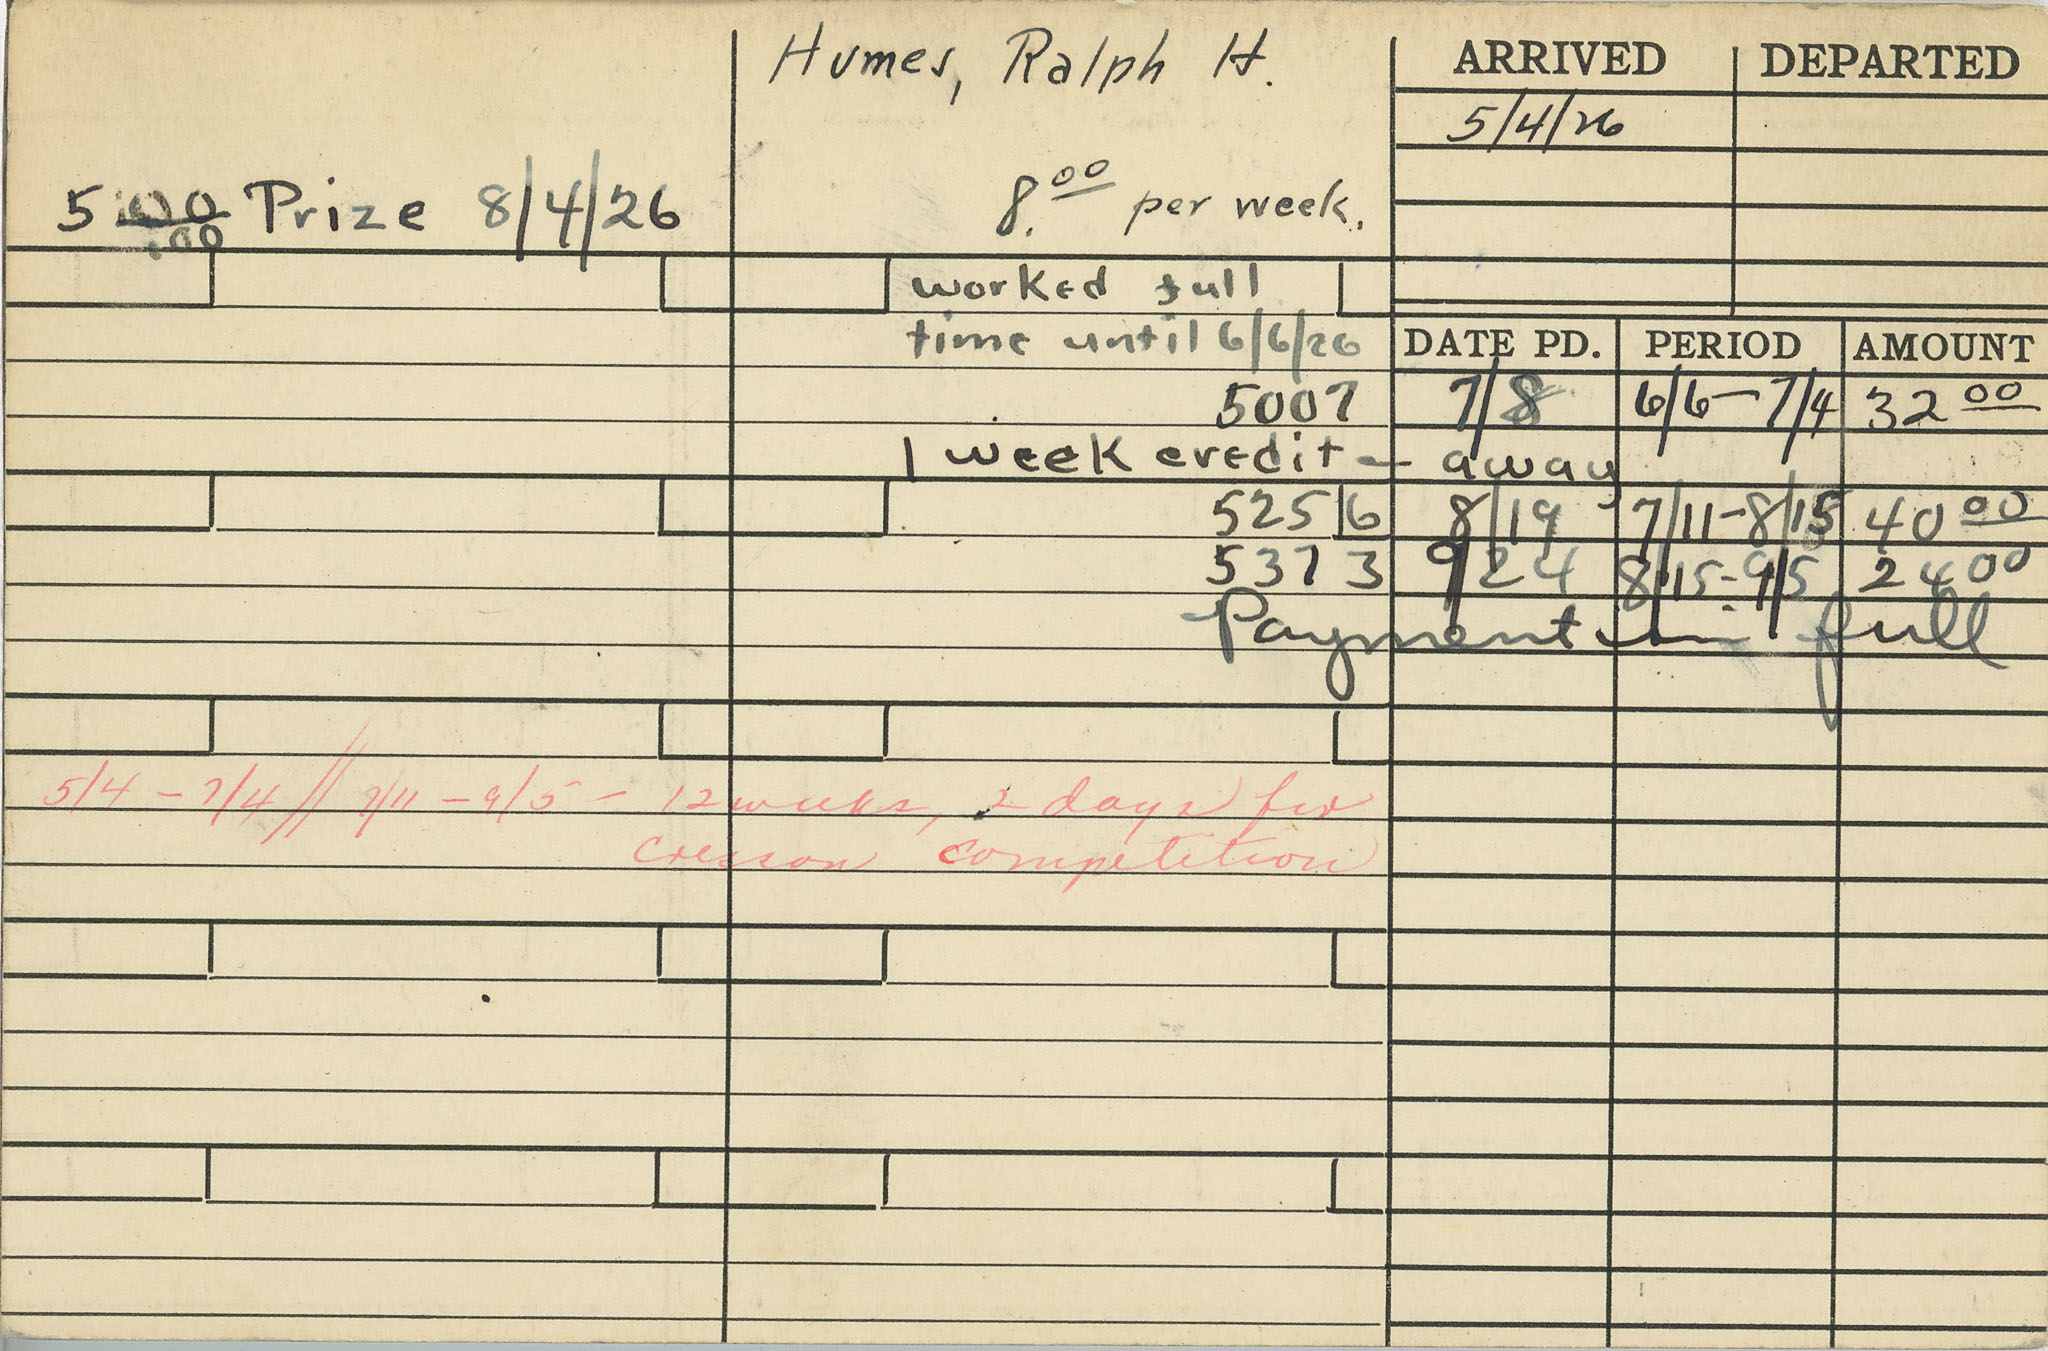 Humes, Ralph H.
ARRIVED DEPARTED
5/4/26
5.00 Prize 8/4/26
8.00 per week.
worked full
time until 6/6/26
DATE PD. PERIOD AMOUNT
5007 7/8 6/6-7/4 32 00
1 week credit - away
5256 8/19 7/11-8/15 40 00
5373 9/24 8/15-9/5 24 00
Payment in full
5/4 - 7/4 // 7/11 - 9/5 - 12 weeks, 2 days for
cresson competition